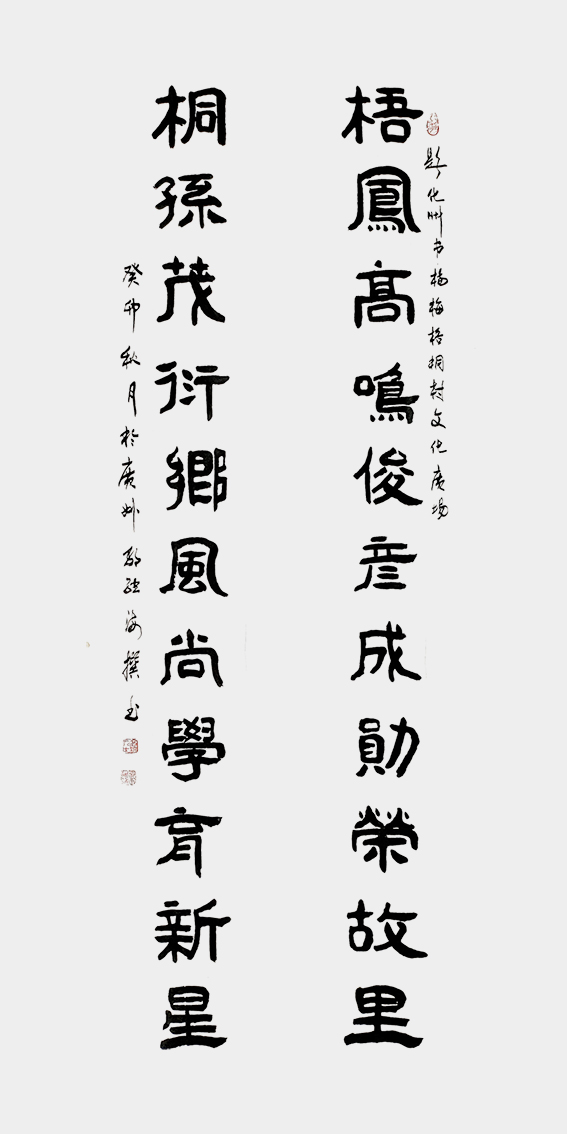 題化州市楊梅梧桐村文化廣場
梧鳳髙鳴俊彦成勛榮故里
桐孫茂衍鄉風尚學育新星
癸卯秋月於廣州海撰书